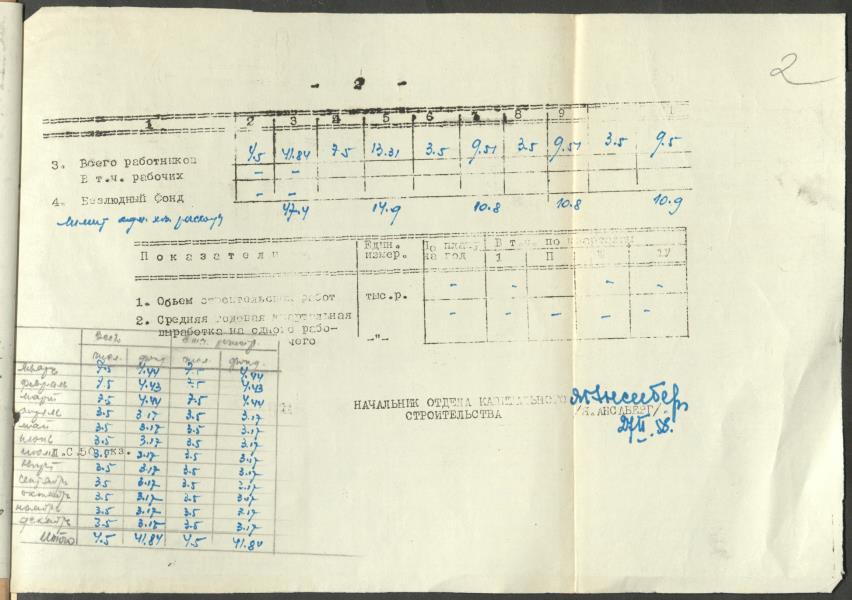 - 2 -
2
1 2 3 4 5 6 7 8 9
3. Всего работников 4.5 41.84 7.5 13.31 3.5 9.51 3.5 9.51 3.5 9.5
В т.ч. рабочих - -
4. Безлюдный Фонд - -
Лимит 47.4 14.9 10.8 10.8 10.9
Показатели Един. измер. По плану на год В т.ч. по кварталам
1 П IУ
1. Объем строительных работ тыс.р. - - - -
2. Средняя годовая квартальная выработка на одного рабочего -"- - - - - -
Всего
числ. фонд числ. фонд.
январь 7.5 4.44 7.5 4.44
февраль 7.5 4.43 7.5 4.43
март 7.5 4.44 7.5 4.44
апрель 3.5 3.17 3.5 3.17
май 3.5 3.17 3.5 3.17
июнь 3.5 3.17 3.5 3.17
июль 3.5 3.17 3.5 3.17
август 3.5 3.17 3.5 3.17
сентябрь 3.5 3.17 3.5 3.17
октябрь 3.5 3.17 3.5 3.17
ноябрь 3.5 3.17 3.5 3.17
декабрь 3.5 3.15 3.5 3.17
Итого 4.5 41.84 4.5 41.84
НАЧАЛЬНИК ОТДЕЛА КАПИТАЛЬНОГО
СТРОИТЕЛЬСТВА /Я.АНСАБЕРГ/.
58.